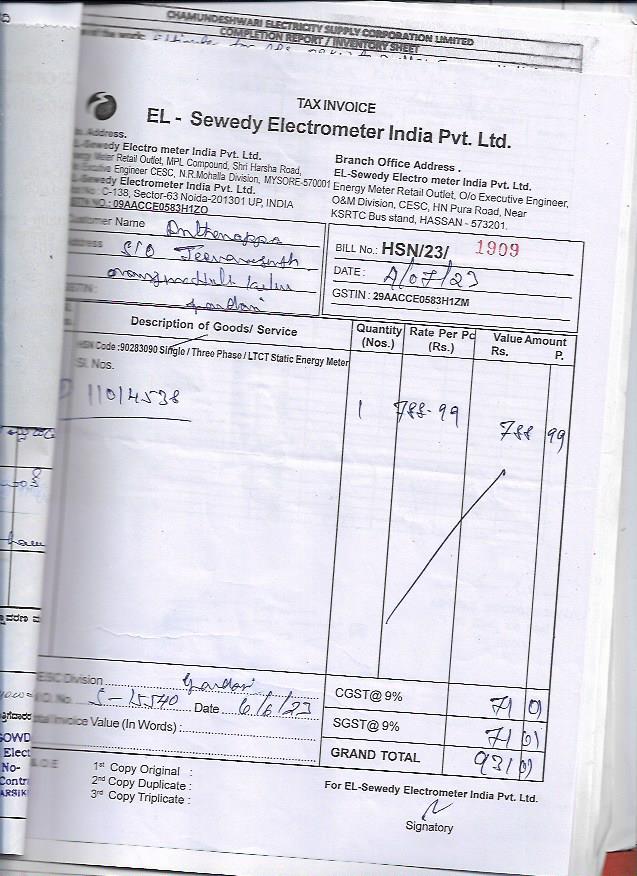 CHAMUNDESHWARI ELECTRICITY SUPPLY CORPORATION LIMITED
COMPLETION REPORT / INVENTORY SHEET
TAX INVOICE
EL - Sewedy Electrometer India Pvt. Ltd.
Address.
-Sewedy Electro meter India Pvt. Ltd.
Meter Retail Outlet, MPL Compound, Shri Harsha Road,
Engineer CESC, N.R.Mohalla Division, MYSORE-570001
Sewedy Electrometer India Pvt. Ltd.
C-138, Sector-63 Noida-201301 UP, INDIA
09AACCE0583H1ZO
Branch Office Address .
EL-Sewedy Electro meter India Pvt. Ltd.
Energy Meter Retail Outlet, O/o Executive Engineer,
O&M Division, CESC, HN Pura Road, Near
KSRTC Bus stand, HASSAN - 573201.
Customer Name
S/O
BILL No.: HSN/23/ 1909
DATE : /07/23
GSTIN : 29AACCE0583H1ZM
Description of Goods/ Service
Quantity (Nos.)
Rate Per Pc (Rs.)
Value Amount
Rs. P.
HSN Code :90283090 Single / Three Phase / LTCT Static Energy Meter
Sl. Nos.
11014538 1 788-99 788 99
CESC Division
S-15540 Date 6/6/23
Invoice Value (In Words) :
CGST@ 9% 71 01
SGST@ 9% 71 01
GRAND TOTAL 931 01
1st Copy Original :
2nd Copy Duplicate :
3rd Copy Triplicate :
For EL-Sewedy Electrometer India Pvt. Ltd.
Signatory